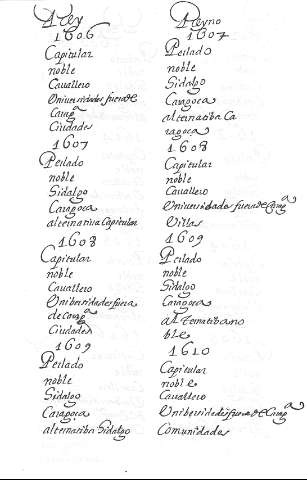 Rey
1606
Capitular
noble
Cauallero
Vniuersidades fuera de
Carag^a
Ciudades
1607
Perlado
noble
Hidalgo
Caragoca
alternatiua Capitular
1608
Capitular
noble
Cauallero
Vnibersidades fuera
de carag^a
Ciudades
1609
Perlado
noble
Hidalgo
Caragoca
alternatiba Hidalgo
Reyno
1607
Perlado
noble
Hidalgo
Caragoca
alternatiba Ca
ragoca
1608
Capitular
noble
Cauallero
Vniuersidades fuera de Carag^a
Villas
1609
Perlado
noble
Hidalgo
Caragoca
alternatiba no
ble
1610
Capitular
noble
Cauallero
Vnibersidades fuera de Carag^a
Comunidades